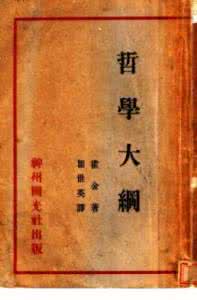 哲學大綱
霍金著
瞿世英譯
神州國光社出版